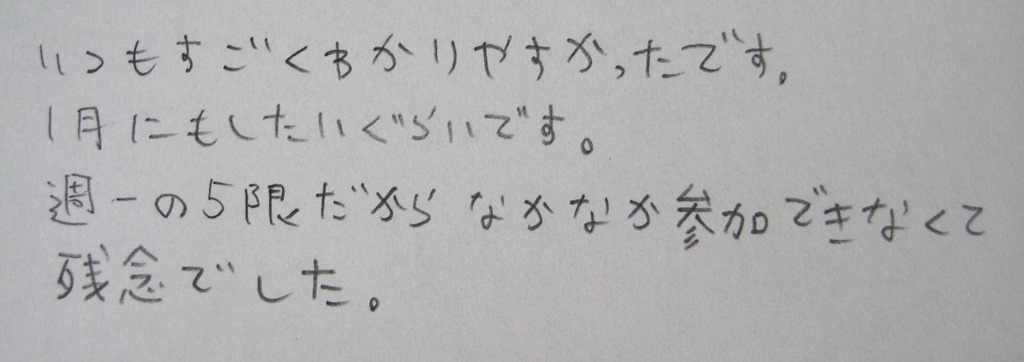 いつもすごくわかりやすかったです。
1月にもしたいぐらいです。
週一の5限だから なかなか参加できなくて
残念でした。